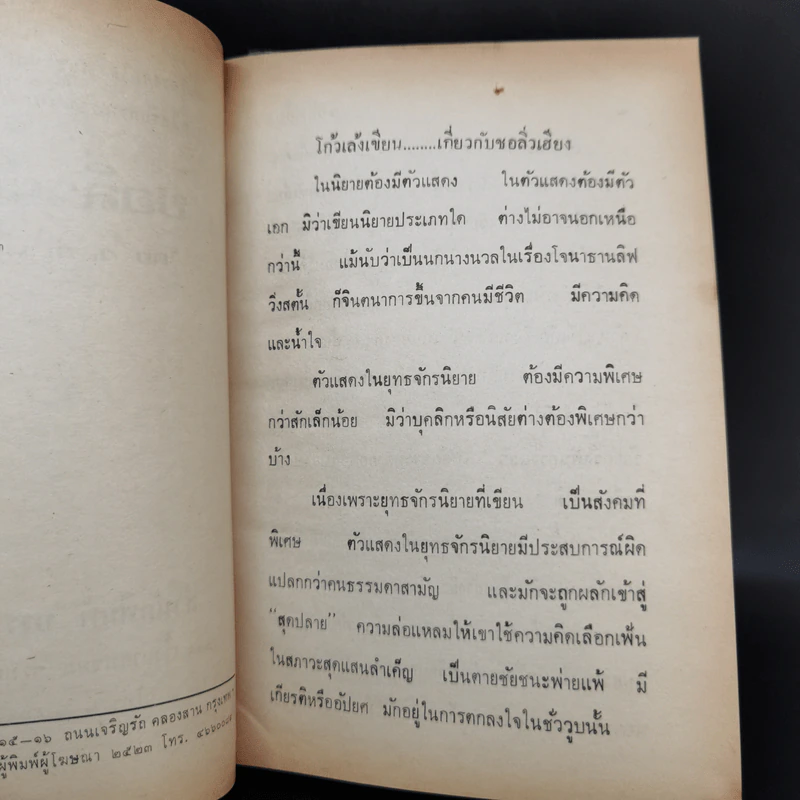 ๑๕–๑๖ ถนนเจริญรัถ คลองสาน กรุงเทพฯ
ผู้พิมพ์ผู้โฆษณา ๒๕๒๓ โทร.
โก้วเล้งเขียน........เกี่ยวกับชอลิ่วเฮียง
ในนิยายต้องมีตัวแสดง ในตัวแสดงต้องมีตัว
เอก มิว่าเขียนนิยายประเภทใด ต่างไม่อาจนอกเหนือ
กว่านี้ แม้นับว่าเป็นนกนางนวลในเรื่องโจนาธานลิฟ
วิ่งสตั้น ก็จินตนาการขึ้นจากคนมีชีวิต มีความคิด
และน้ำใจ
ตัวแสดงในยุทธจักรนิยาย ต้องมีความพิเศษ
กว่าสักเล็กน้อย มิว่าบุคลิกหรือนิสัยต่างต้องพิเศษกว่า
บ้าง
เนื่องเพราะยุทธจักรนิยายที่เขียน เป็นสังคมที่
พิเศษ ตัวแสดงในยุทธจักรนิยายมีประสบการณ์ผิด
แปลกกว่าคนธรรมดาสามัญ และมักจะถูกผลักเข้าสู่
"สุดปลาย" ความล่อแหลมให้เขาใช้ความคิดเลือกเฟ้น
ในสภาวะสุดแสนลำเค็ญ เป็นตายชัยชนะพ่ายแพ้ มี
เกียรติหรืออัปยศ มักอยู่ในการตกลงใจในชั่ววูบนั้น